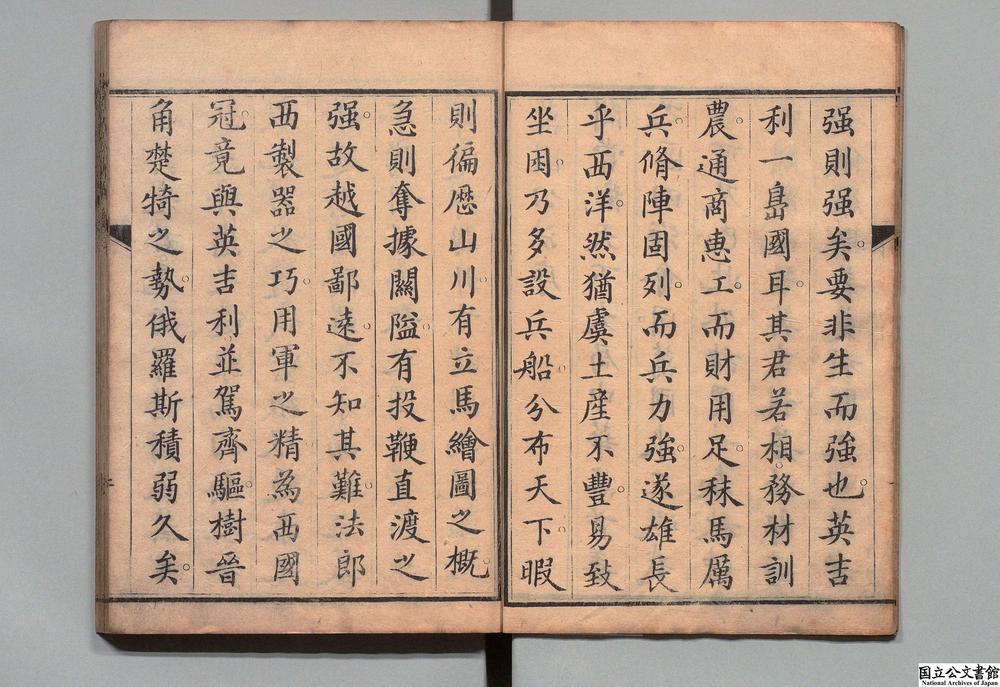 强則强矣。要非生而強也。英吉
利一島國耳。其君若相。務材訓
農。通商惠工。而財用足。秣馬厲
兵。脩陣固列。而兵力強。遂雄長
乎西洋。然猶虞土產不豐。易致
坐困。乃多設兵船。分布天下。暇
則徧歷山川。有立馬繪圖之概。
急則奪據關隘。有投鞭直渡之
强。故越國鄙遠。不知其難。法郎
西製器之巧。用軍之精。為西國
冠。竟與英吉利並駕齊驅。樹晉
角楚犄之勢。俄羅斯積弱久矣。
国立公文書館
National Archives of Japan